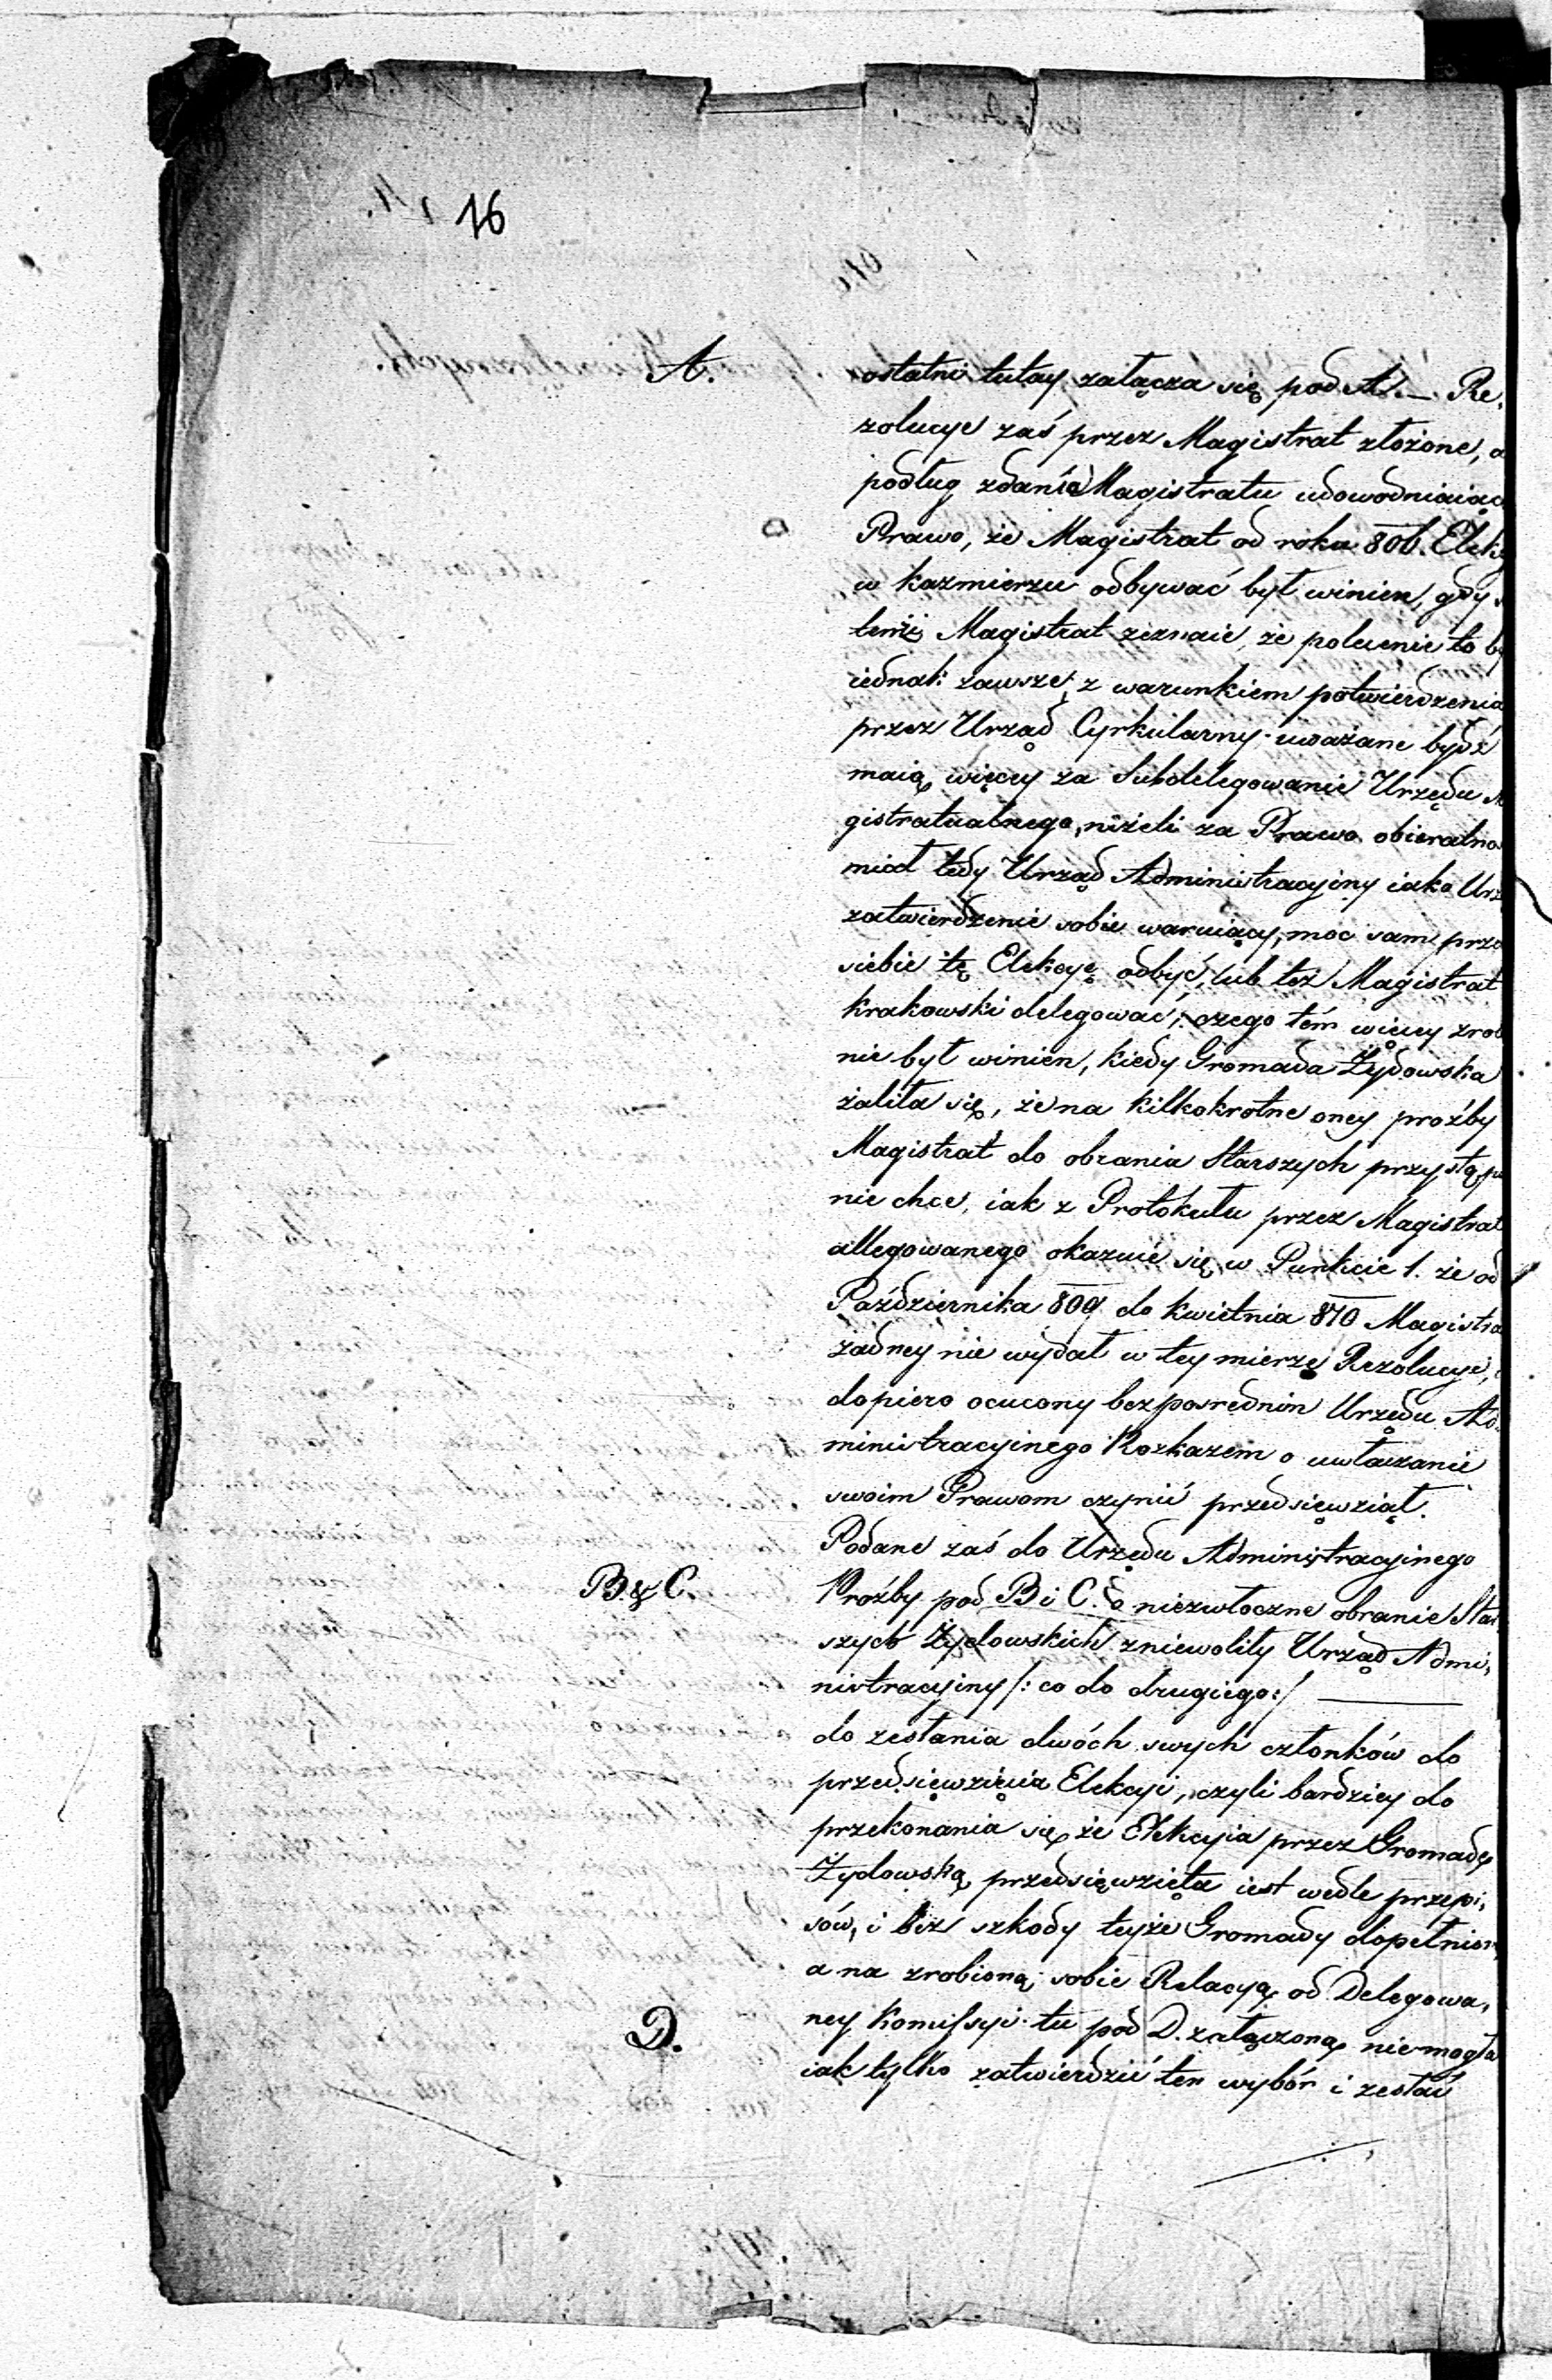 16
A.
ostatni tutay załącza się pod A. — Re,
zolucye zaś przez Magistrat złożone, a
podług zdania Magistratu udowodniaiąc
Prawo, że Magistrat od roku 806. Elekc
w kazmierzu odbywać był winien, gdy
tenże Magistrat zeznaie, że polecenie to by
iednak zawsze z warunkiem potwierdzenia
przez Urząd Cyrkularny uważane bydź
maią więcey za Subdelegowanie Urzędu M
gistratualnego, niżeli za Prawo obieralno
miał tedy Urząd Administracyiny iako Urz
zatwierdzenie sobie waruiący, moc sam prze
siebie tę Elekcyę odbyć, lub też Magistrat
krakowski delegować, czego tém więcey zrob
nie był winien, kiedy Gromada Żydowska
żaliła się, że na kilkokrotne oney proźby
Magistrat do obrania Starszych przystąp
nie chce, iak z Protokułu przez Magistrat
allegowanego okazuie się w Punkcie 1. że od
Października 809 do kwietnia 810 Magistra
żadney nie wydał w tey mierze Rezolucyi,
dopiero ocucony bezpośrednim Urzędu Ad,
ministracyinego Rozkazem o uwłaczanie
swoim Prawom czynić przedsięwziął.
Podane zaś do Urzędu Administracyinego
B. & C.
Proźby pod B i C. o niezwłoczne obranie Star,
szych Żydowskich zniewoliły Urząd Admi,
nistracyiny /: co do drugiego:/ —
do zesłania dwóch swych członków do
przedsięwzięcia Elekcyi, czyli bardziey do
przekonania się że Elekcyia przez Gromadę
Żydowską przedsięwzięta iest wedle przepi,
sów, i bez szkody teyże Gromady dopełnion
a na zrobioną sobie Relacyą od Delegowa,
D.
ney Komissyi tu pod D. załączoną niemogła
iak tylko zatwierdzić ten wybór i zesłać